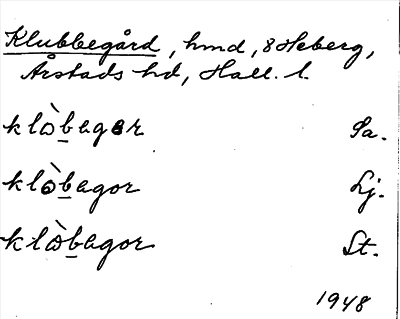 Klubbegård, hmd, 8 Heberg,
Årstads hd, Hall. l.
klòb̲agɞr Sa.
klòb̲agor Lj.
klòb̲agor St.
1948